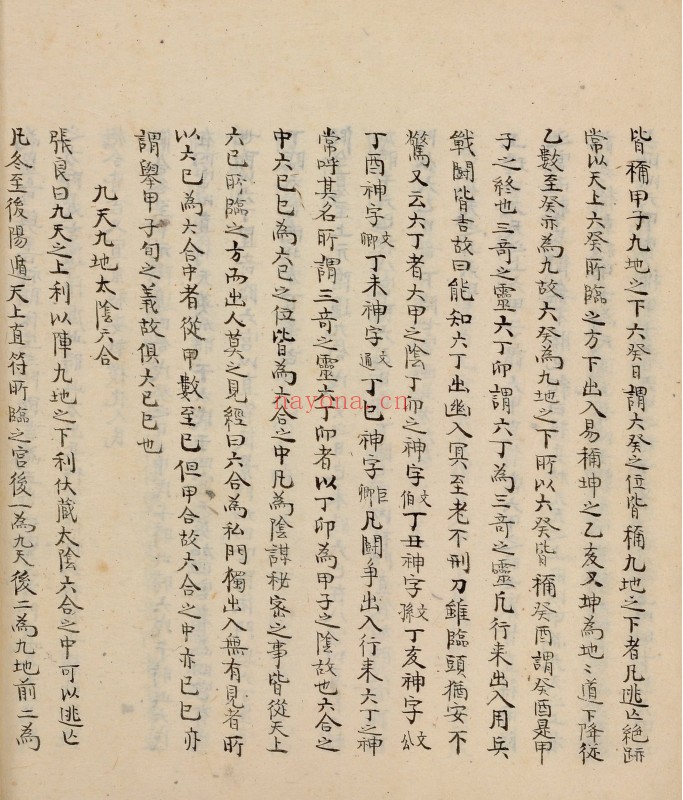 皆稱甲子九地之下六癸日謂六癸之位皆稱九地之下者凡逃亾絕跡
常以天上六癸所臨之方下出入易稱坤之乙亥又坤為地〻道下降従
乙數至癸亦為九故六癸為九地之下所以六癸皆稱癸酉謂癸酉是甲
子之終也三竒之靈六丁卯謂六丁為三竒之靈凡行来出入用兵
戰鬪皆吉故曰能知六丁出幽入冥至老不刑刀雖臨頭猶安不
驚又云六丁者大甲之陰丁卯之神字文伯丁丑神字文孫丁亥神字文公
丁酉神字文卿丁未神字文通丁巳神字巨卿凡鬪争出入行来六丁之神
常呼其名所謂三竒之靈六丁卯者以丁卯為甲子之陰故也六合之
中六己巳為六己之位皆為六合之中凡為陰謀秘密之事皆從天上
六己所臨之方而出人莫之見經曰六合為私門獨出入無有見者所
以六己為六合中者從甲數至己但甲合故六合之中亦己巳亦
謂舉甲子旬之義故俱六己巳也
九天九地太陰六合
張良曰九天之上利以陣九地之下利伏藏太陰六合之中可以逃亾
凡冬至後陽遁天上直符所臨之宮後一為九天後二為九地前二為
nayona.cn